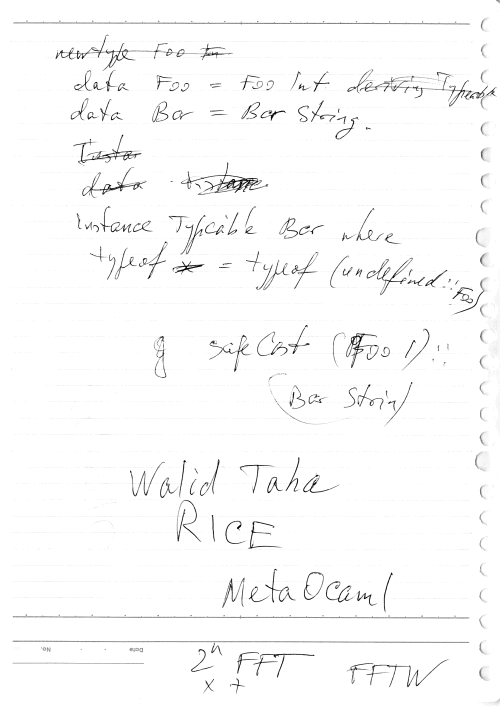 newtype Foo
data Foo = Foo Int deriving Typeable
data Bar = Bar String.
Instan
data instance
instance Typeable Bar where
typeof x = typeof (undefined :: Foo)
safeCast (Foo 1) ::
(Bar String)
Walid Taha
RICE
MetaOcaml
No. Date
2^n FFT FFTW
x +